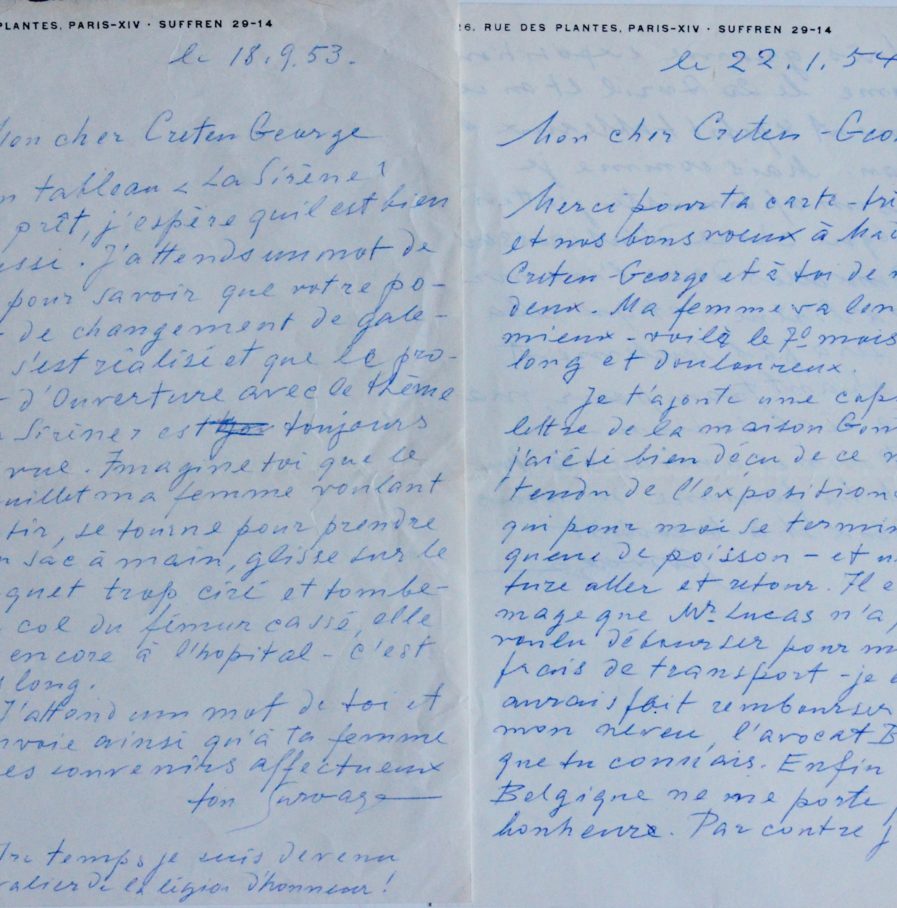 PLANTES, PARIS-XIV · SUFFREN 29-14
le 18.9.53.
Mon cher Creten George
n tableau « La Sirène?
prêt, j'espère qu'il est bien
ussi. J'attends un mot de
pour savoir que votre po-
de changement de gale-
s'est réalisé et que le pro-
d'Ouverture avec le thème
Sirènes est toujours
vue. Imagine toi que le
juillet ma femme voulant
tir, se tourne pour prendre
n sac à main, glisse sur le
quet trop ciré et tombe-
col du fémur cassé, elle
encore à l'hopital - c'est
long.
J'attend un mot de toi et
nvoie ainsi qu'à ta femme
es souvenirs affectueux
ton Survage
tre temps je suis devenu
valier de la légion d'honneur!
26, RUE DES PLANTES, PARIS-XIV · SUFFREN 29-14
le 22.1.54
Mon cher Creten-Geo
Merci pour ta carte-
et nos bons voeux à Ma
Creten-George et à toi de n
deux. Ma femme va len
mieux - voilà le 7e mois
long et douloureux.
Je t'ajoute une cop
lettre de la maison
j'ai été bien déçu de ce
tendu de l'exposition
qui pour moi se termin
queue de poisson - et
ture aller et retour. Il e
mage que Mr. Lucas n'a
voulu débourser pour m
frais de transport - je
aurais fait rembourser
mon neveu, l'avocat B
que tu connais. Enfin
Belgique ne me porte
bonheur. Par contre j